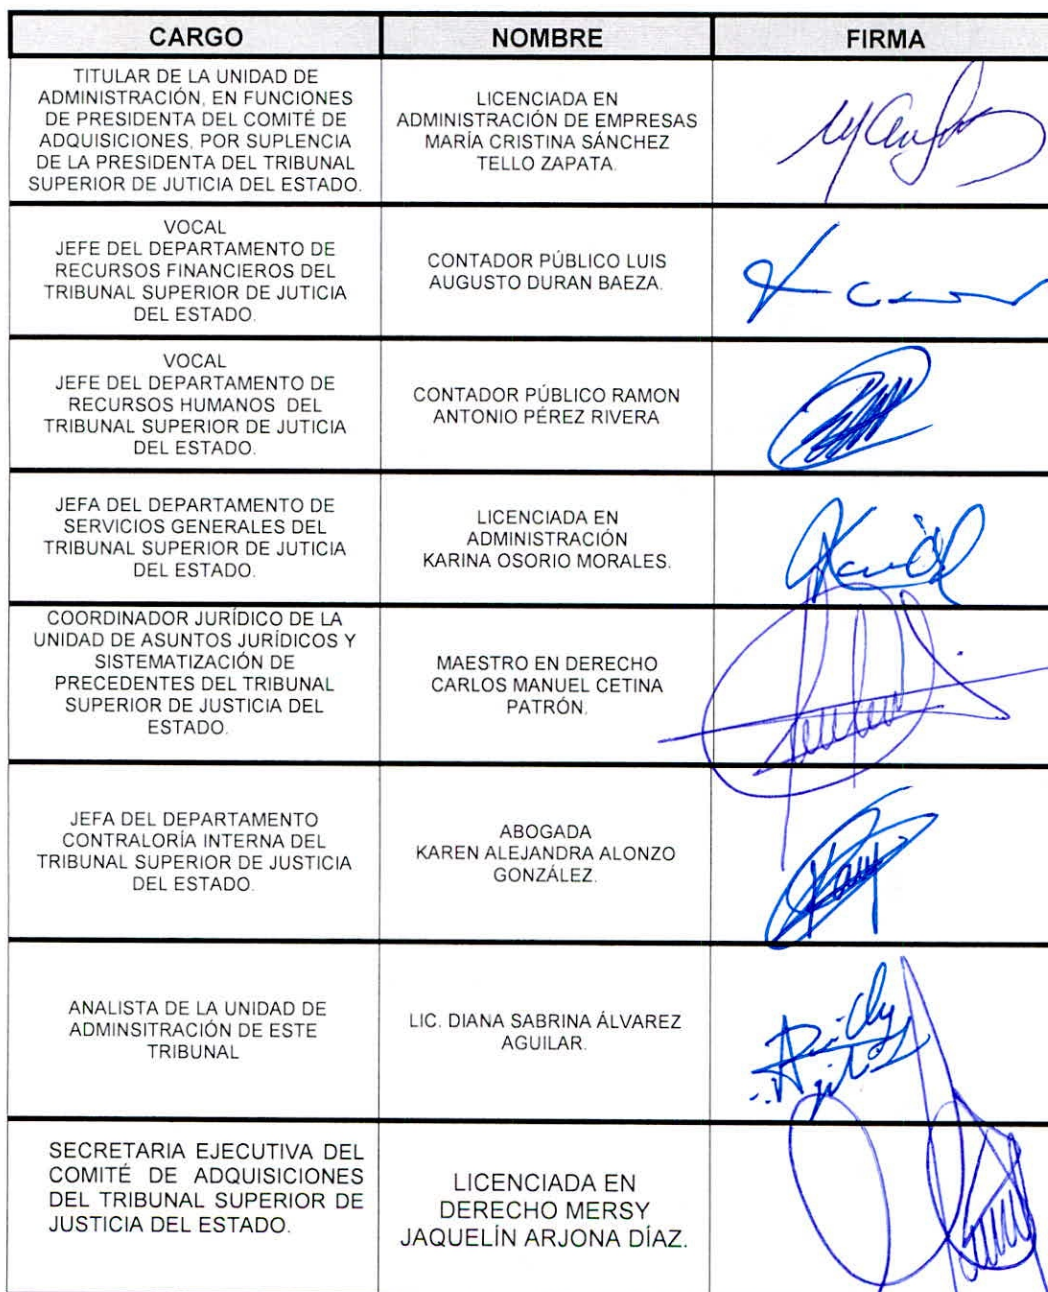 CARGO NOMBRE FIRMA
TITULAR DE LA UNIDAD DE
ADMINISTRACIÓN, EN FUNCIONES
DE PRESIDENTA DEL COMITÉ DE
ADQUISICIONES, POR SUPLENCIA
DE LA PRESIDENTA DEL TRIBUNAL
SUPERIOR DE JUTICIA DEL ESTADO.
LICENCIADA EN
ADMINISTRACIÓN DE EMPRESAS
MARÍA CRISTINA SÁNCHEZ
TELLO ZAPATA.
VOCAL
JEFE DEL DEPARTAMENTO DE
RECURSOS FINANCIEROS DEL
TRIBUNAL SUPERIOR DE JUTICIA
DEL ESTADO.
CONTADOR PÚBLICO LUIS
AUGUSTO DURAN BAEZA.
VOCAL
JEFE DEL DEPARTAMENTO DE
RECURSOS HUMANOS DEL
TRIBUNAL SUPERIOR DE JUTICIA
DEL ESTADO.
CONTADOR PÚBLICO RAMON
ANTONIO PÉREZ RIVERA
JEFA DEL DEPARTAMENTO DE
SERVICIOS GENERALES DEL
TRIBUNAL SUPERIOR DE JUTICIA
DEL ESTADO.
LICENCIADA EN
ADMINISTRACIÓN
KARINA OSORIO MORALES.
COORDINADOR JURÍDICO DE LA
UNIDAD DE ASUNTOS JURÍDICOS Y
SISTEMATIZACIÓN DE
PRECEDENTES DEL TRIBUNAL
SUPERIOR DE JUSTICIA DEL
ESTADO.
MAESTRO EN DERECHO
CARLOS MANUEL CETINA
PATRÓN.
JEFA DEL DEPARTAMENTO
CONTRALORÍA INTERNA DEL
TRIBUNAL SUPERIOR DE JUSTICIA
DEL ESTADO.
ABOGADA
KAREN ALEJANDRA ALONZO
GONZÁLEZ.
ANALISTA DE LA UNIDAD DE
ADMINSITRACIÓN DE ESTE
TRIBUNAL
LIC. DIANA SABRINA ÁLVAREZ
AGUILAR.
SECRETARIA EJECUTIVA DEL
COMITÉ DE ADQUISICIONES
DEL TRIBUNAL SUPERIOR DE
JUSTICIA DEL ESTADO.
LICENCIADA EN
DERECHO MERSY
JAQUELÍN ARJONA DÍAZ.